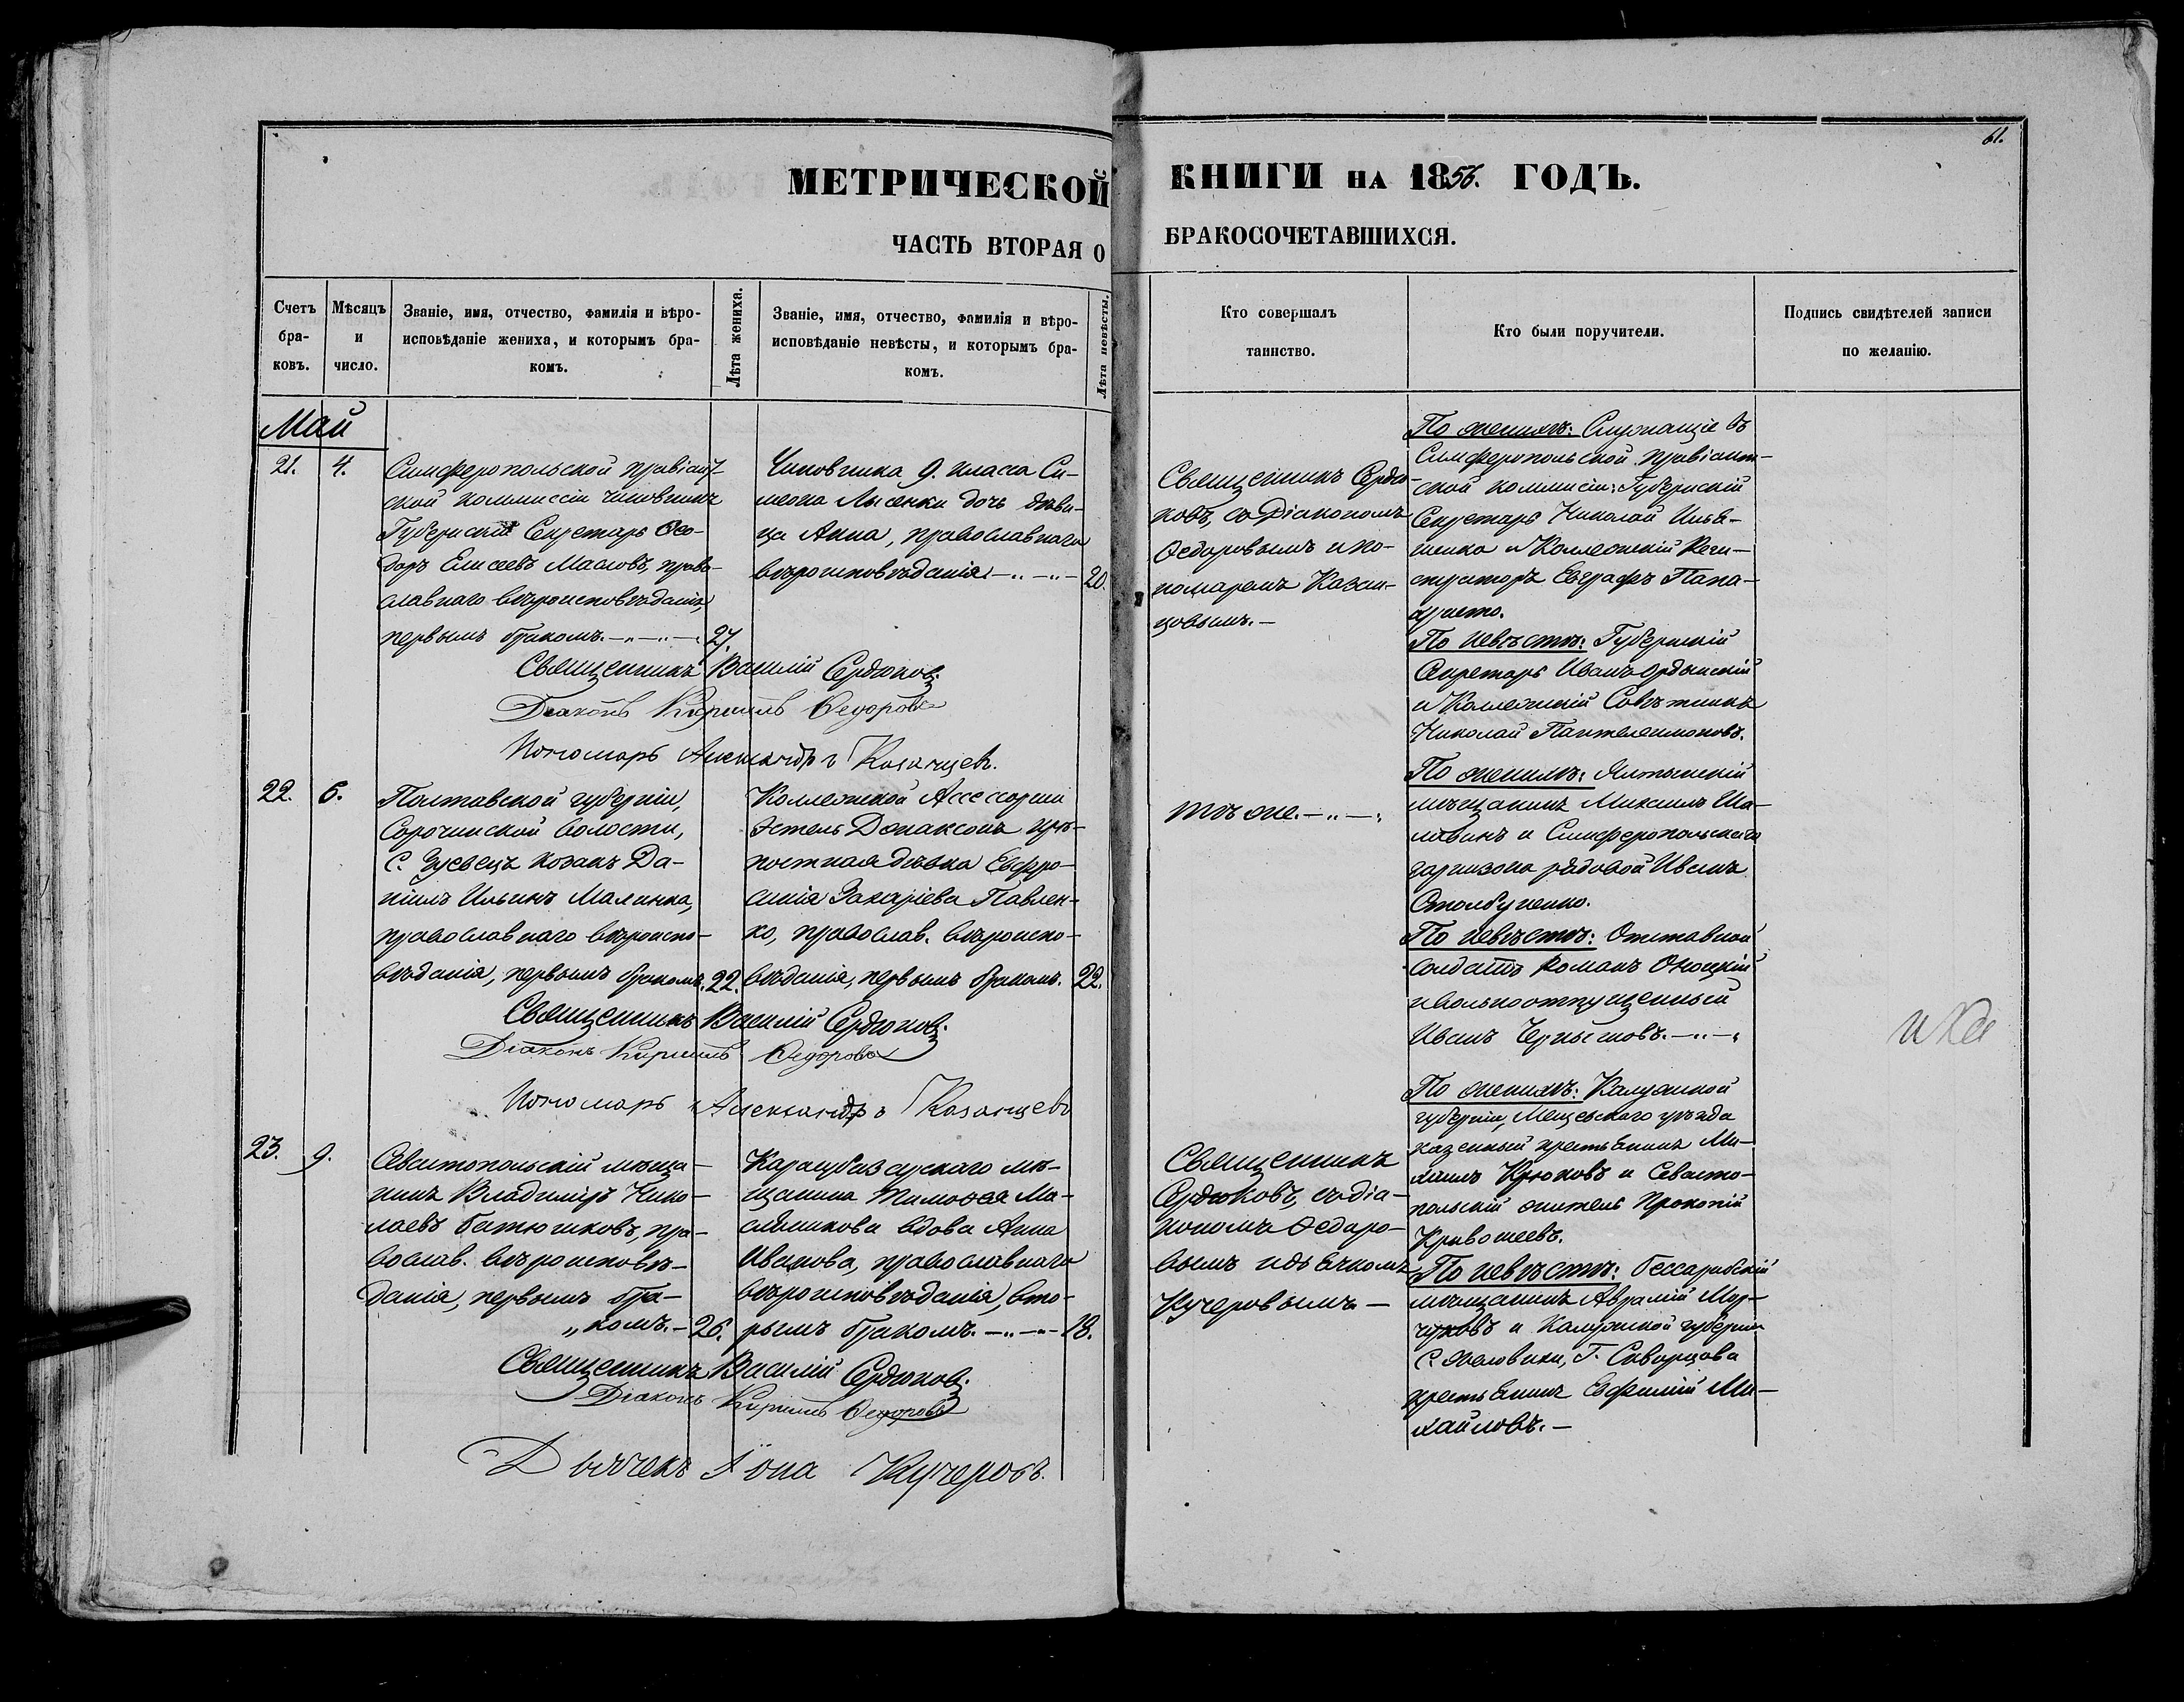 61.
МЕТРИЧЕСКОЙ КНИГИ НА 1856. ГОДЪ.
ЧАСТЬ ВТОРАЯ О БРАКОСОЧЕТАВШИХСЯ.
Счетъ бра-
ковъ.
Мѣсяцъ
и
число.
Званіе, имя, отчество, фамилія и вѣро-
исповѣданіе жениха, и которымъ бра-
комъ.
Лѣта жениха.
Званіе, имя, отчество, фамилія и вѣро-
исповѣданіе невѣсты, и которымъ бра-
комъ.
Лѣта невѣсты.
Кто совершалъ
таинство.
Кто были поручители.
Подпись свидѣтелей записи
по желанію.
Май
21.
4.
Симферопольской провіант-
ской коммиссіи чиновникъ
Губернскій Секретарь Ѳео-
доръ Елисеевъ Масловъ, право-
славнаго вѣроисповѣданія,
первымъ бракомъ.
27.
Чиновника 9. класса Си-
меона Лысенки дочь дѣви-
ца Анна, православнаго
вѣроисповѣданія
20.
Священникъ Сердю-
ковъ, со Діакономъ
Ѳедоровымъ и по-
номаремъ Казан-
цовымъ.
По женихѣ: Служащіе въ
Симферопольской провіант-
ской коммисіи: Губернскій
Секретарь Николай
и Коллежскій Реги-
страторъ Евграфъ Папа-
По невѣстѣ: Губернскій
Секретарь Иванъ Ордынскій
и Коллежскій Совѣтникъ
Николай Пантелеимоновъ.
Священникъ Василій Сердюковъ.
Діаконъ Кириллъ Ѳедоровъ
Пономарь Александръ Казанцевъ.
22.
6.
Полтавской губерніи,
Сорочинской волости,
С. козакъ Да-
ніилъ Ильинъ Малинка,
православнаго вѣроиспо-
вѣданія, первымъ бракомъ.
22.
Коллежской Ассессорши
Эстель Донаксонъ крѣ-
постная дѣвка Евфро-
синія Захаріева Павлен-
ко, православ. вѣроиспо-
вѣданія, первымъ бракомъ.
22.
тѣ же.
По женихѣ: Ялтынскій
мѣщанинъ Михаилъ Ша-
лавинъ и Симферопольскаго
гарнизона рядовой Иванъ
По невѣстѣ: Отставной
солдатъ Романъ
и вольноотпущенный
Иванъ Чернышовъ.
Священникъ Василій Сердюковъ.
Діаконъ Кириллъ Ѳедоровъ
Пономарь Александръ Казанцевъ
23.
9.
Севастопольскій мѣща-
нинъ Владиміръ Нико-
лаевъ Батюшковъ, пра-
вослав. вѣроисповѣ-
данія, первымъ бра-
„комъ.
26.
Карасубазарскаго мѣ-
щанина Тимоѳея Ма-
сленникова вдова Анна
Иванова, православнаго
вѣроисповѣданія, вто-
рымъ бракомъ.
18.
Священникъ
Сердюковъ, съ діа-
кономъ Ѳедоро-
вымъ и дьячкомъ
Кучеровымъ
По женихѣ: Калужской
губерніи, Мещевскаго уѣзда
казенный крестьянинъ Ми-
хаилъ Крюковъ и Севасто-
польскій житель Прокопій
Кривошеевъ.
По невѣстѣ: Бессарабскій
мѣщанинъ Аврамій Мор-
и Калужской губерніи
С. Г. Скворцова
крестьянинъ Евфимій Ми-
хайловъ.
Священникъ Василій Сердюковъ.
Діаконъ Кириллъ Ѳедоровъ
Дьячекъ Іона Кучеровъ.